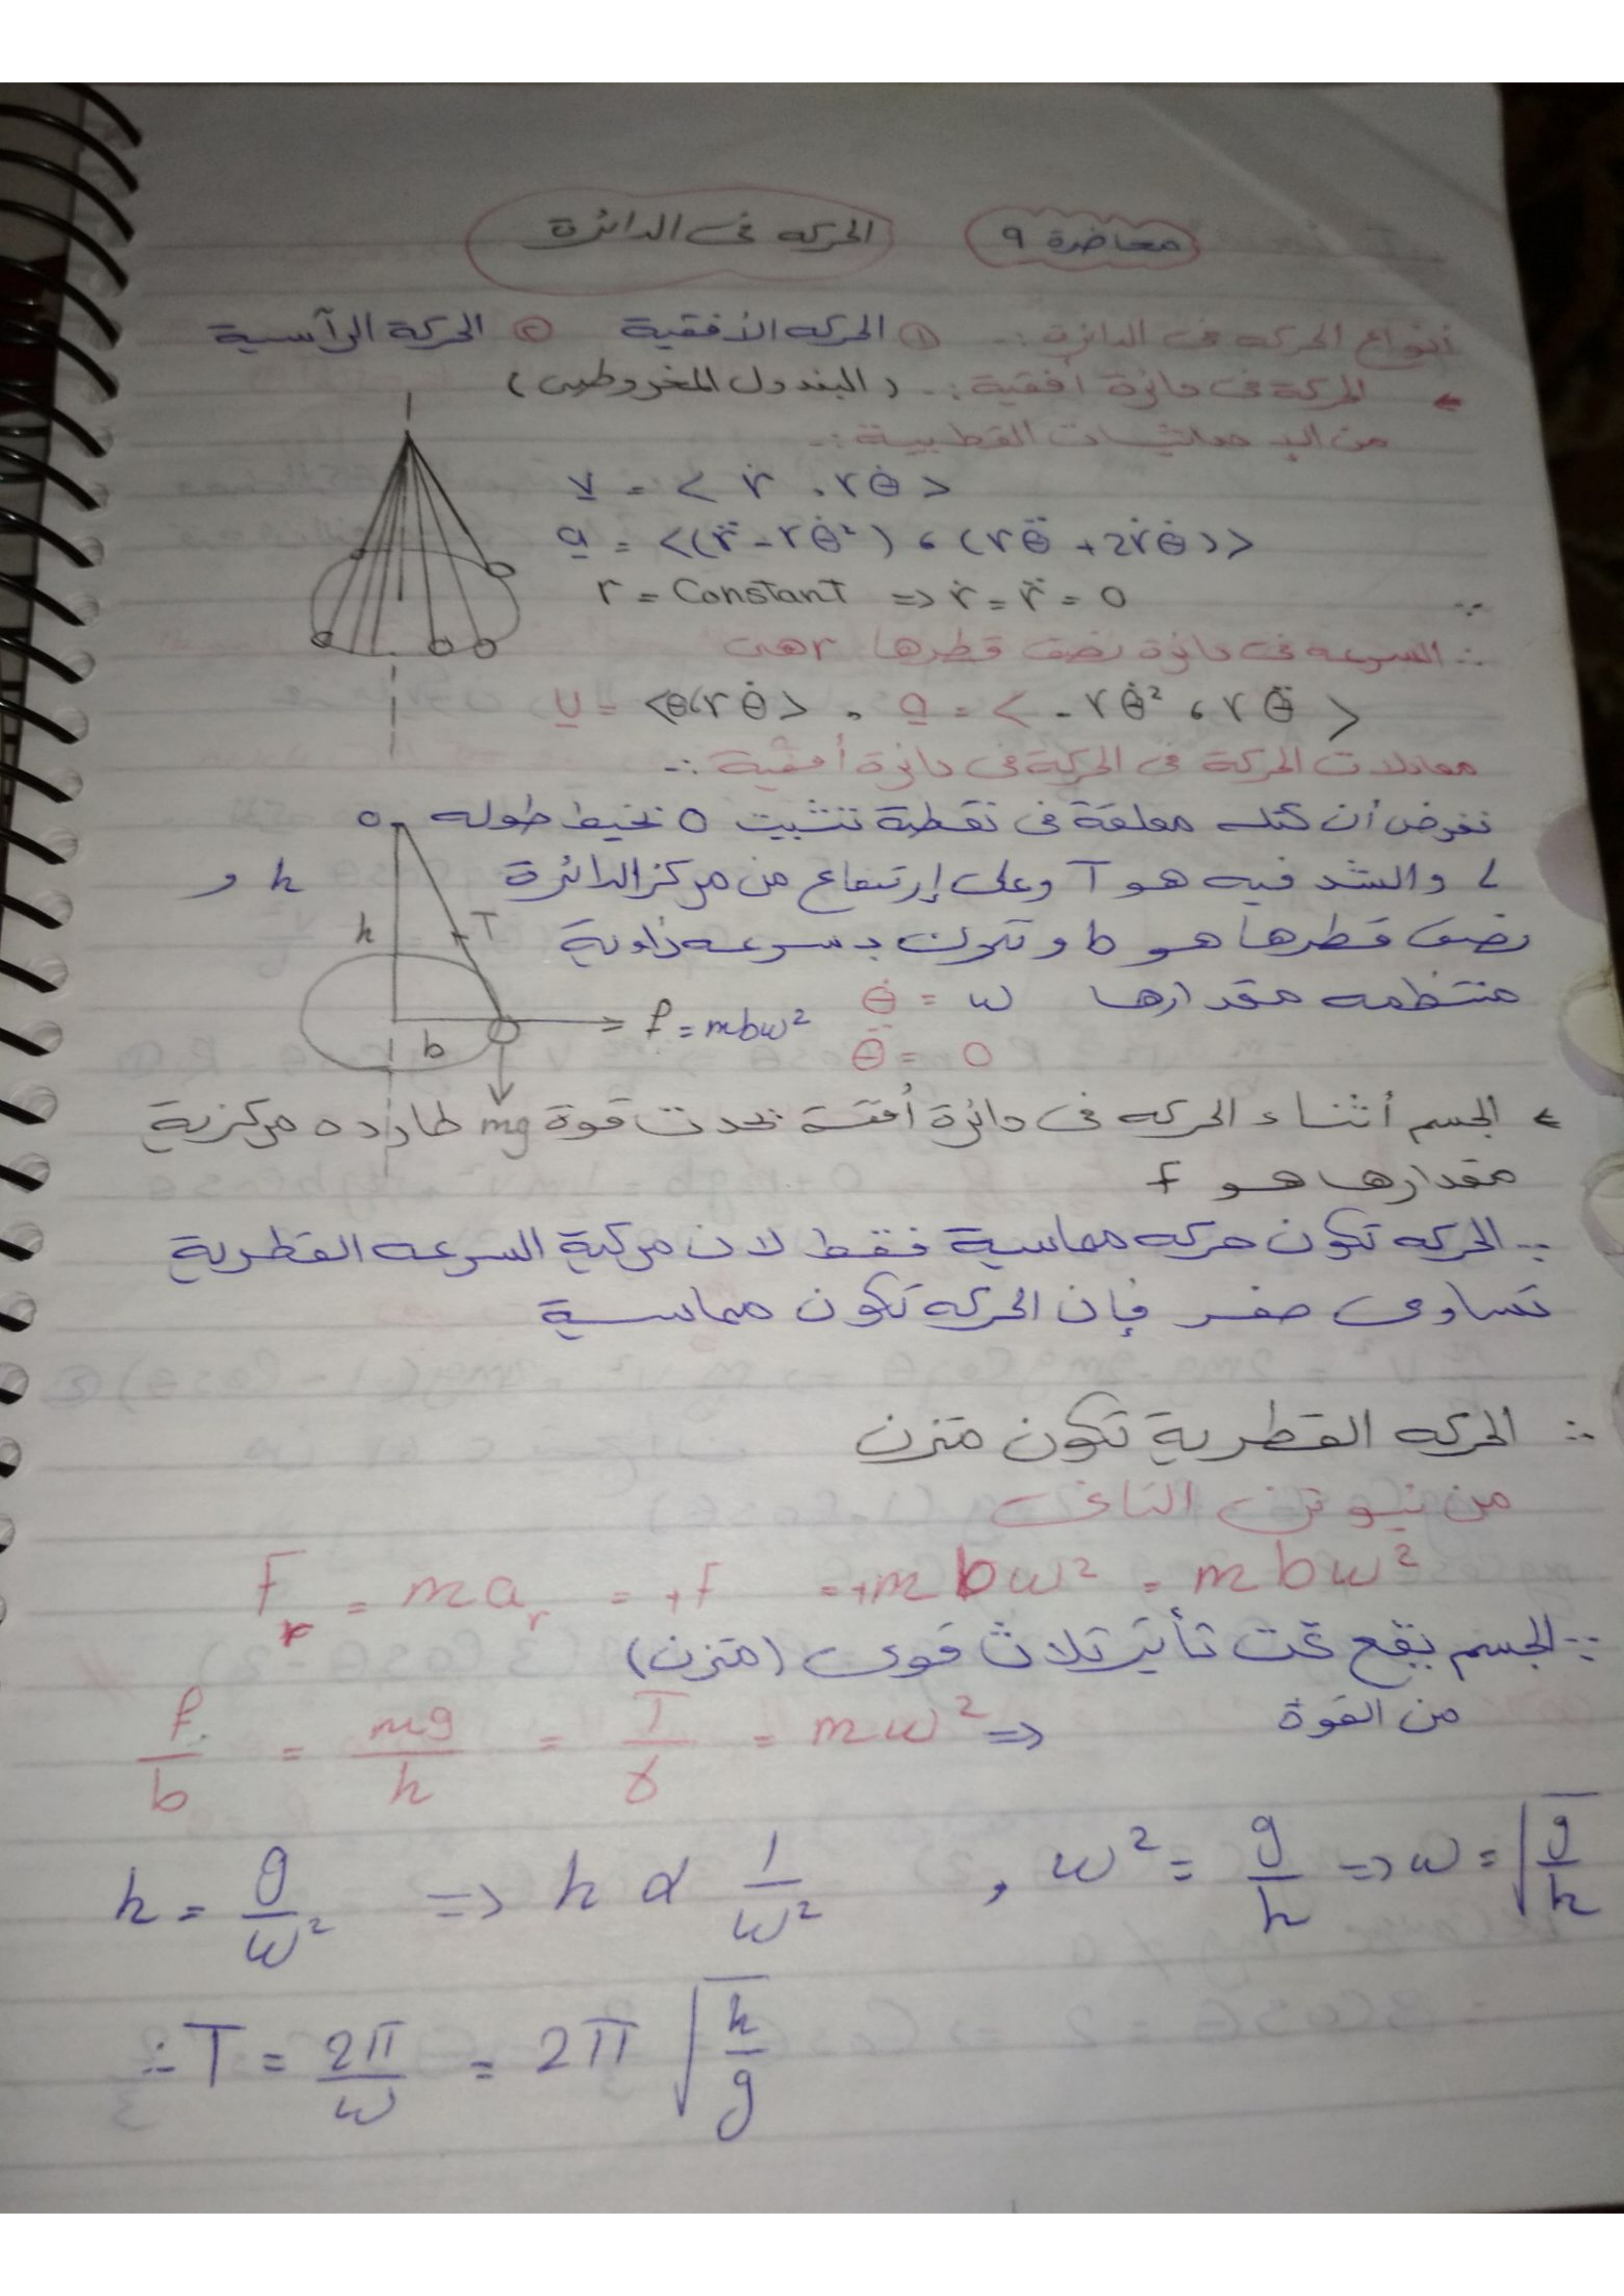 محاضرة ٩ الحركه فى الدائرة
أنواع الحركه فى الدائرة :- ① الحركه الأفقية ② الحركة الرآسية
الحركة فى دائرة أفقية :- (البندول المخروطى)
من القطبية :-
v = < ṙ , rθ̇ >
a = <(r̈ - rθ̇²) , (rθ̈ + 2ṙθ̇)>
r = Constant => ṙ = r̈ = 0
∴ السرعه فى دائرة نصف قطرها r هى
v = <θ, rθ̇> , a = < - rθ̇² , rθ̈ >
معادلات الحركة فى الحركة فى دائرة أفقية :-
نفرض أن كتله معلقة فى نقطة تثبيت O بخيط طوله
L والشد فيه هو T وعلى إرتفاع من مركز الدائرة h و
نصف قطرها هو b و تكون بسرعه زاوية
منتظمه مقدارها θ̇ = ω
θ̈ = 0
O
h
T
b
f = mbω²
mg
الجسم أثناء الحركه فى دائرة أفقية تحدث قوة طارده مركزية
مقدارها هو f
∵ الحركه تكون حركه مماسية فقط لان مركبة السرعه القطرية
تساوى صفر فإن الحركه تكون مماسية
∴ الحركه القطرية تكون متزن
من نيوتن الثانى
F_r = ma_r = +f = +mbω² = mbω²
∵ الجسم يقع تحت تأثير ثلاث قوى (متزن)
من القوة
f/b = mg/h = T/γ = mω² =>
h = g/ω² => h α 1/ω² , ω² = g/h => ω = √(g/h)
∴ T = 2π/ω = 2π √(h/g)